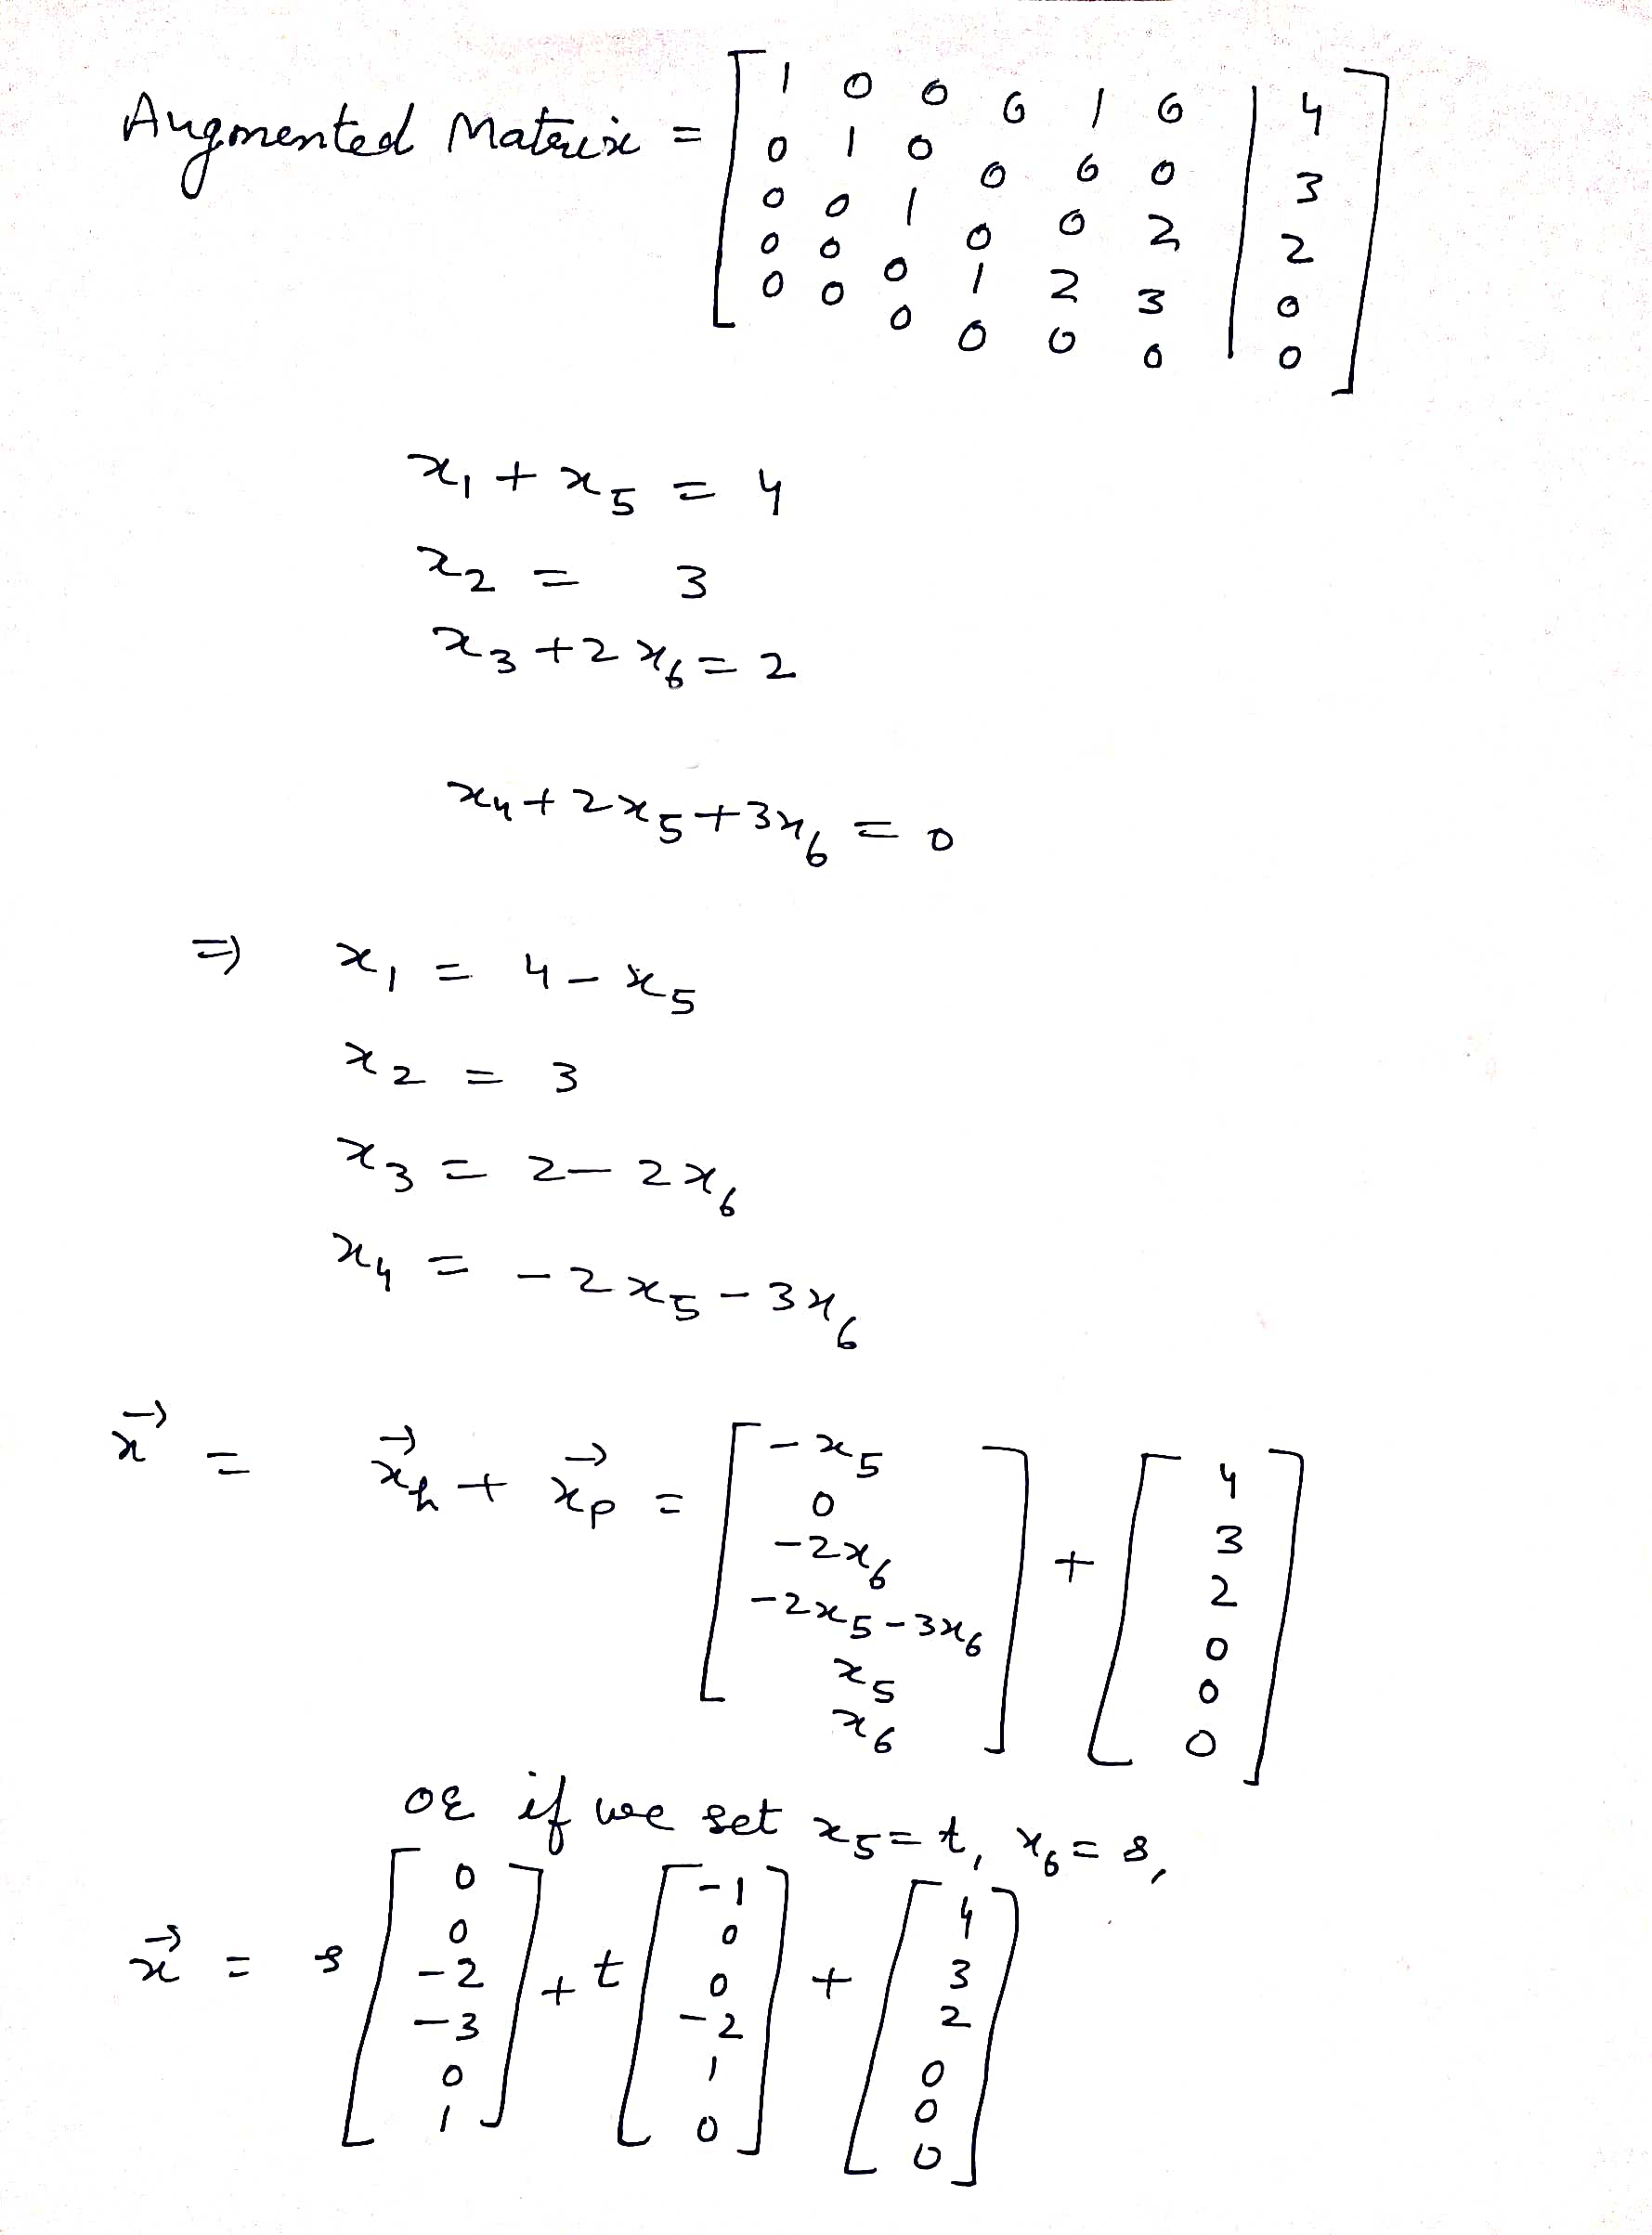 Augmented Matrix = [ 1 0 0 0 1 0 | 4 ]
0 1 0 0 0 0 | 3
0 0 1 0 0 2 | 2
0 0 0 1 2 3 | 0
0 0 0 0 0 0 | 0
x₁ + x₅ = 4
x₂ = 3
x₃ + 2x₆ = 2
x₄ + 2x₅ + 3x₆ = 0
⇒ x₁ = 4 - x₅
x₂ = 3
x₃ = 2 - 2x₆
x₄ = -2x₅ - 3x₆
x⃗ = x⃗ₕ + x⃗ₚ = [ -x₅ 0 -2x₆ -2x₅-3x₆ x₅ x₆ ] + [ 4 3 2 0 0 0 ]
OR if we set x₅ = t, x₆ = s,
x⃗ = s [ 0 0 -2 -3 0 1 ] + t [ -1 0 0 -2 1 0 ] + [ 4 3 2 0 0 0 ]